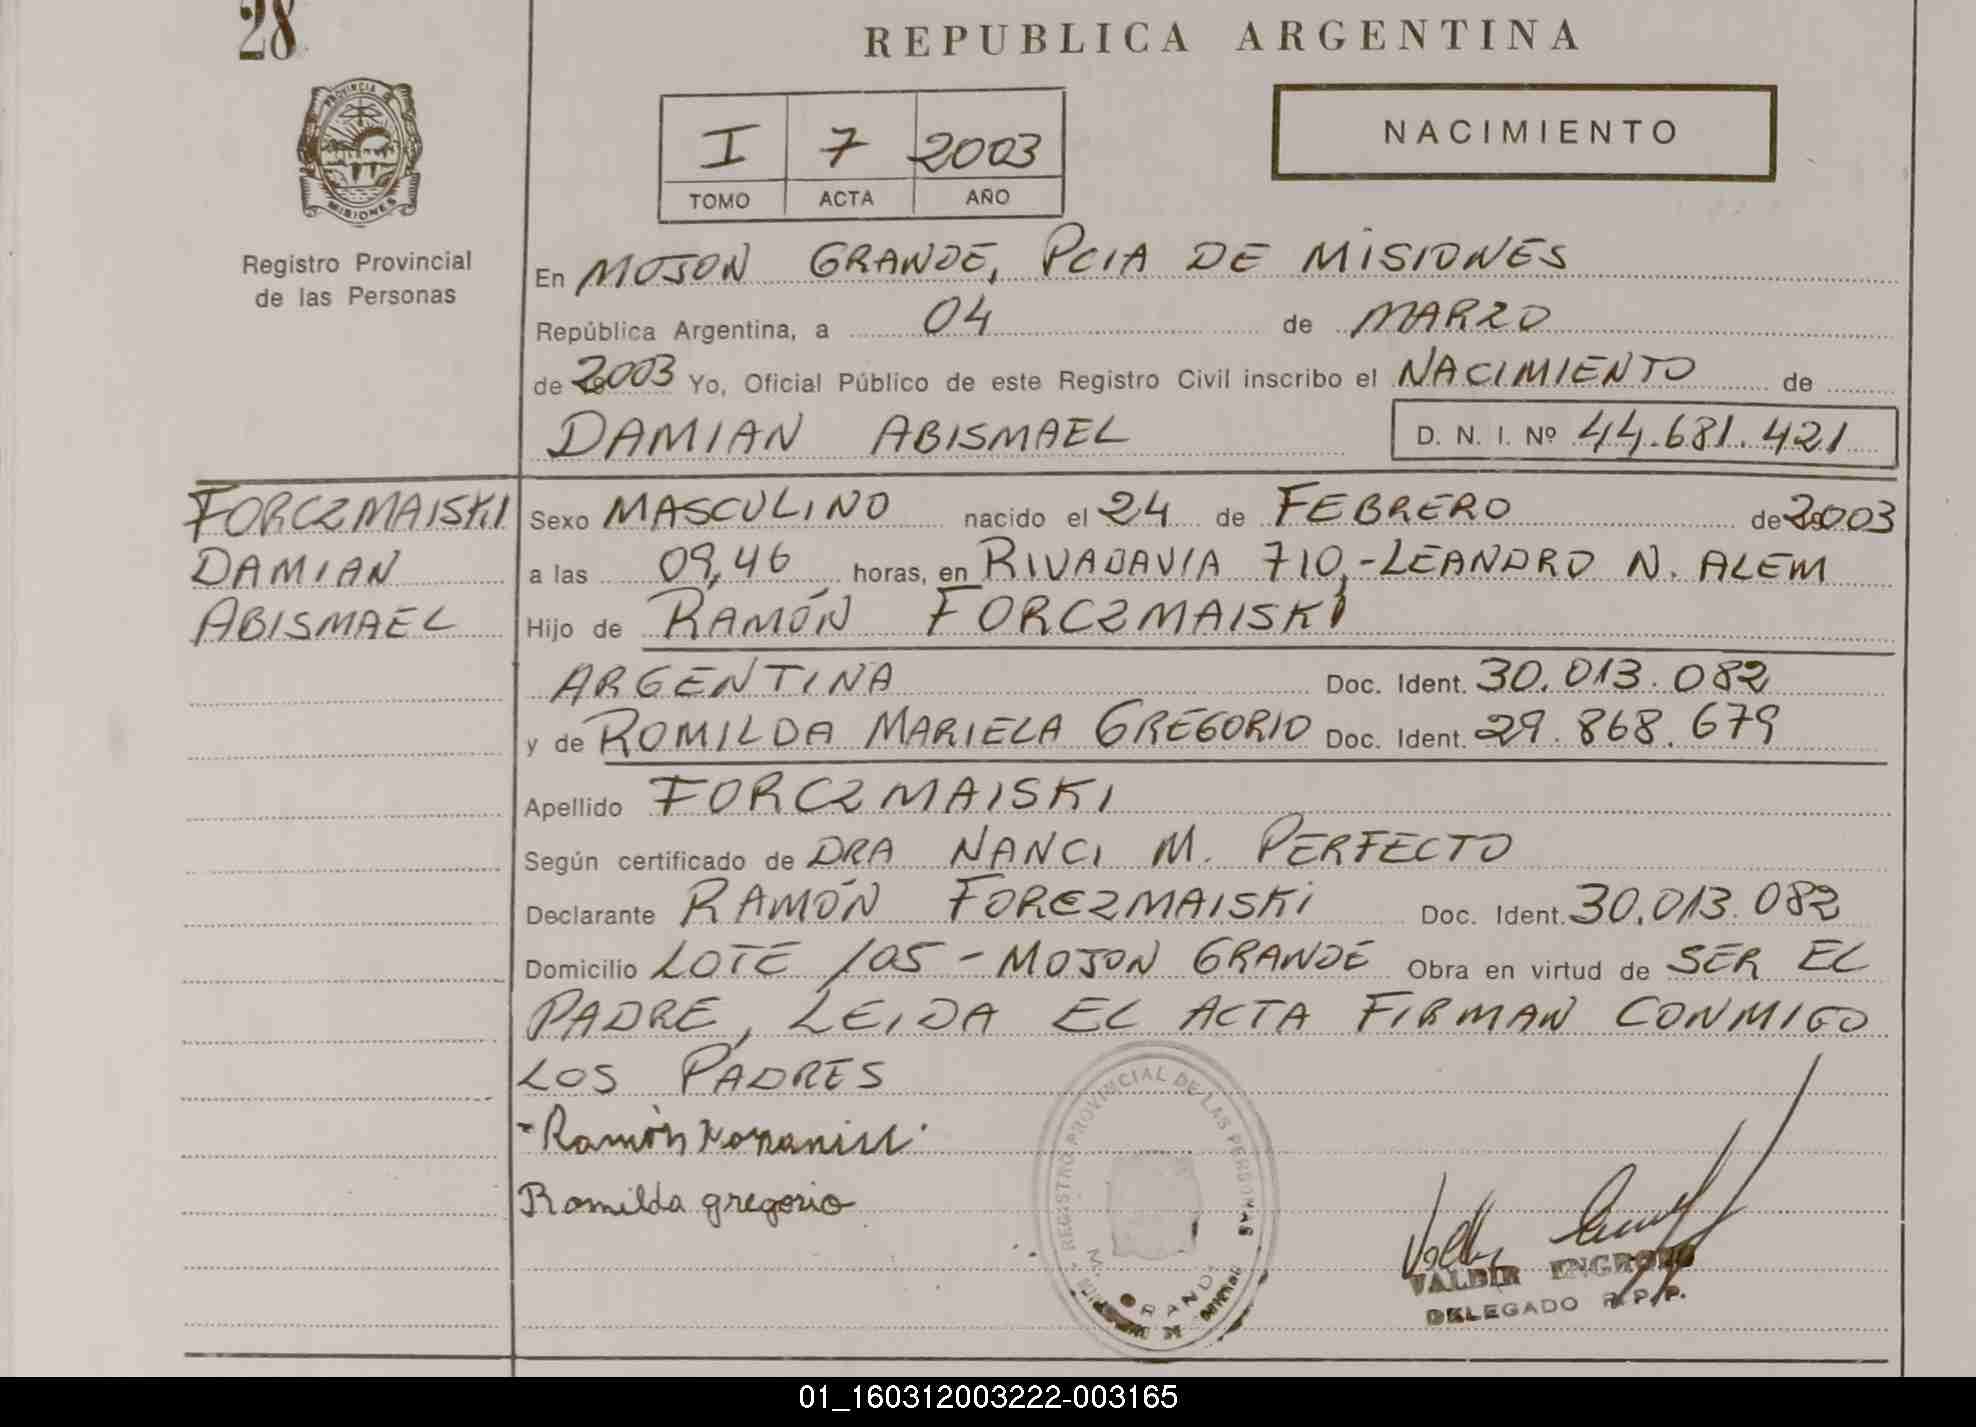 28
REPUBLICA ARGENTINA
PROVINCIA DE
MISIONES
Registro Provincial
de las Personas
I 7 2003
TOMO ACTA AÑO
NACIMIENTO
En MOJON GRANDE, PCIA DE MISIONES
República Argentina, a 04 de MARZO
de 2003 Yo, Oficial Público de este Registro Civil inscribo el NACIMIENTO de
DAMIAN ABISMAEL D. N. I. Nº 44.681.421
FORCZMAISKI
DAMIAN
ABISMAEL
Sexo MASCULINO nacido el 24 de FEBRERO de 2003
a las 09,46 horas, en RIVADAVIA 710,-LEANDRO N. ALEM
Hijo de RAMÓN FORCZMAISKI
ARGENTINA Doc. Ident. 30.013.082
y de ROMILDA MARIELA GREGORIO Doc. Ident. 29.868.679
Apellido FORCZMAISKI
Según certificado de DRA NANCI M. PERFECTO
Declarante RAMÓN FOREZMAISKI Doc. Ident. 30.013.082
Domicilio LOTE 105 - MOJON GRANDE Obra en virtud de SER EL
PADRE, LEIDA EL ACTA FIRMAN CONMIGO
LOS PADRES
Ramón
Romilda gregorio
REGISTRO PROVINCIAL DE LAS PERSONAS
VALDIR
DELEGADO R.P.P.
01_160312003222-003165